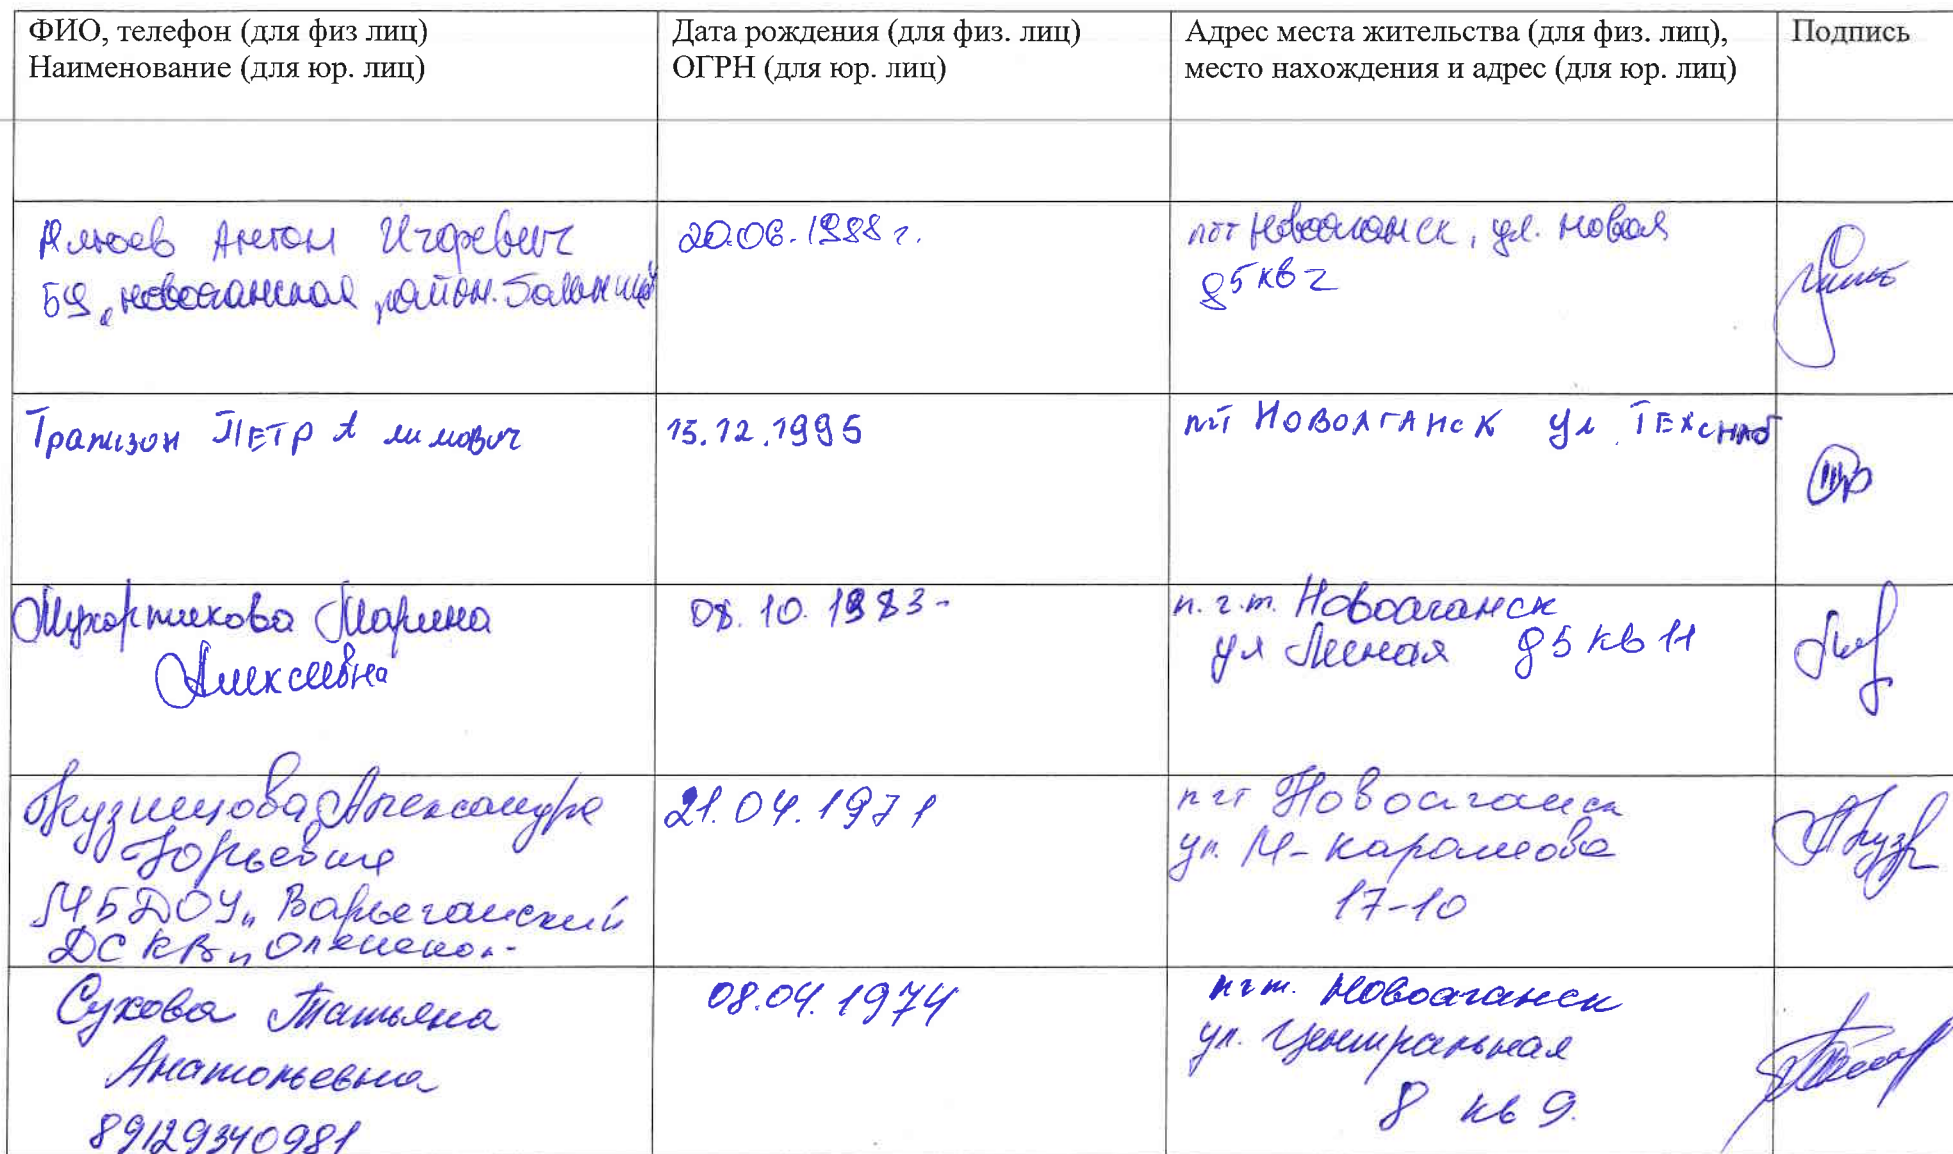 ФИО, телефон (для физ лиц)
Наименование (для юр. лиц)
Дата рождения (для физ. лиц)
ОГРН (для юр. лиц)
Адрес места жительства (для физ. лиц),
место нахождения и адрес (для юр. лиц)
Подпись
Антон Игоревич
20.06.1988 г.
пгт Новоаганск, ул. Новая
д5 кв 2
Трапизон ПЕТР Алимович
15.12.1995
пгт НОВОАГАНСК ул ТЕХСНАБ
Мухортикова Марина
Алексеевна
08.10.1983
п.г.т. Новоаганск
ул Лесная д5 кв 11
Кузнецова Александра
Юрьевна
МБДОУ„ Варьеганский
ДС КВ „Олененок"
21.04.1971
пгт Новоаганск
ул. М-Карамова
17-10
Сухова Татьяна
Анатольевна
89129340981
08.04.1974
пгт. Новоаганск
ул. Центральная
8 кв 9.